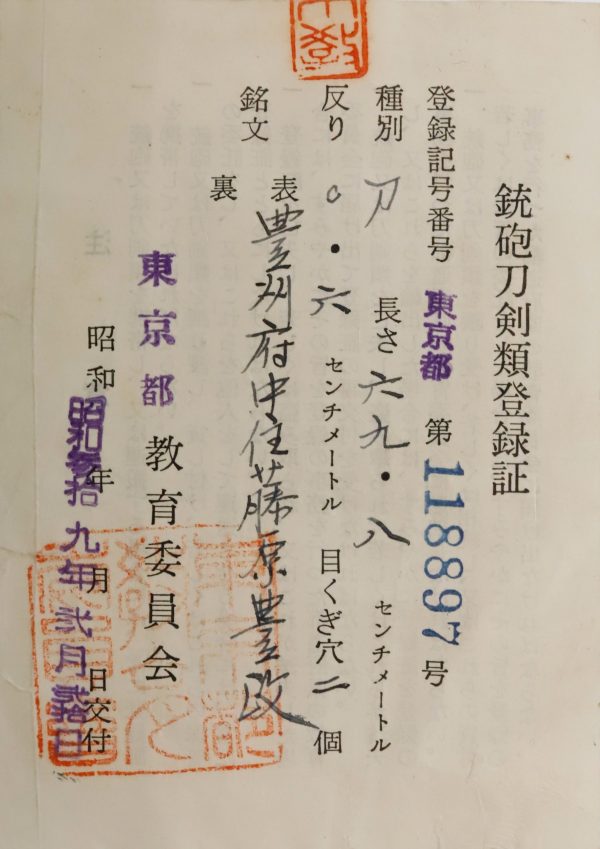 銃砲刀剣類登録証
登録記号番号 東京都 第 118897 号
種別 刀 長さ 六九・八 センチメートル
反り 〇・六 センチメートル 目くぎ穴 二 個
銘文 表 豊州府中住藤原豊政
裏
東京都 教育委員会
昭和 年 月 日交付
昭和参拾九年弐月